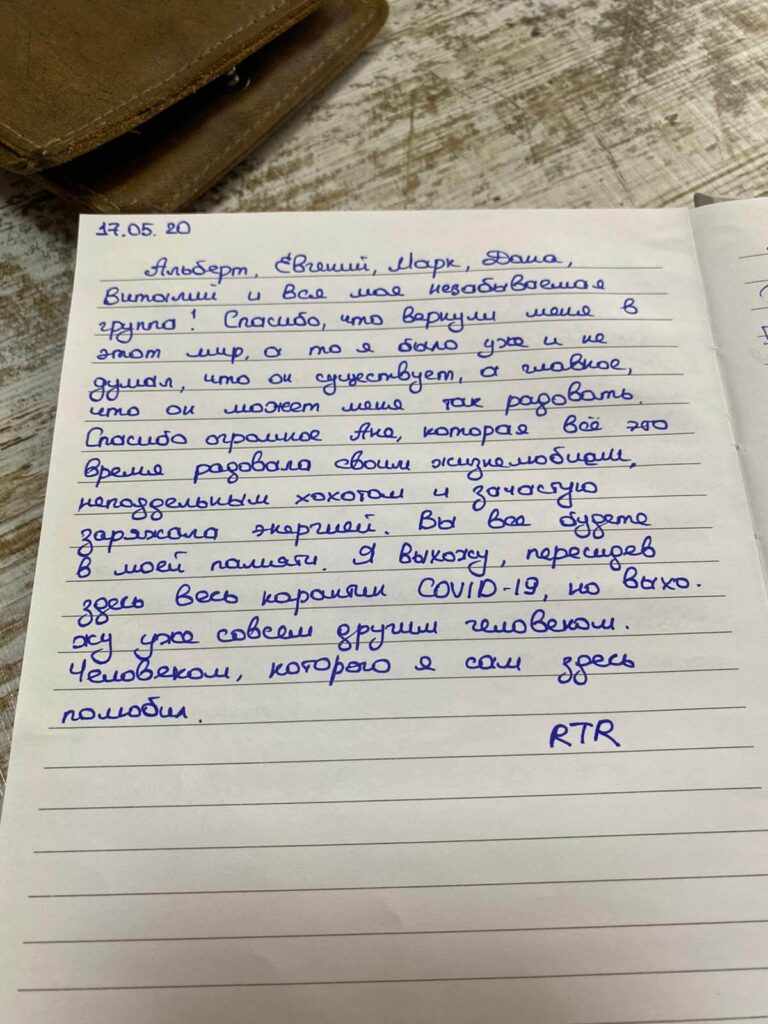 17.05.20
Альберт, Евгений, Марк, Дана,
Виталий и вся моя незабываемая
группа! Спасибо, что вернули меня в
этот мир, а то я было уже и не
думал, что он существует, а главное,
что он может меня так радовать.
Спасибо огромное Ане, которая всё это
время радовала своим жизнелюбием,
неподдельным хохотом и зачастую
заряжала энергией. Вы все будете
в моей памяти. Я выхожу, пересидев
здесь весь карантин COVID-19, но выхо-
жу уже совсем другим человеком.
Человеком, которого я сам здесь
полюбил.
RTR